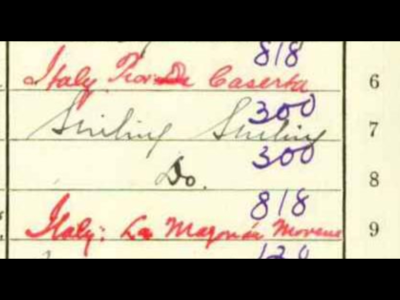 818
Italy Caserta 6
300
Stirling Stirling 7
300
Do. 8
818
Italy: La 9
120